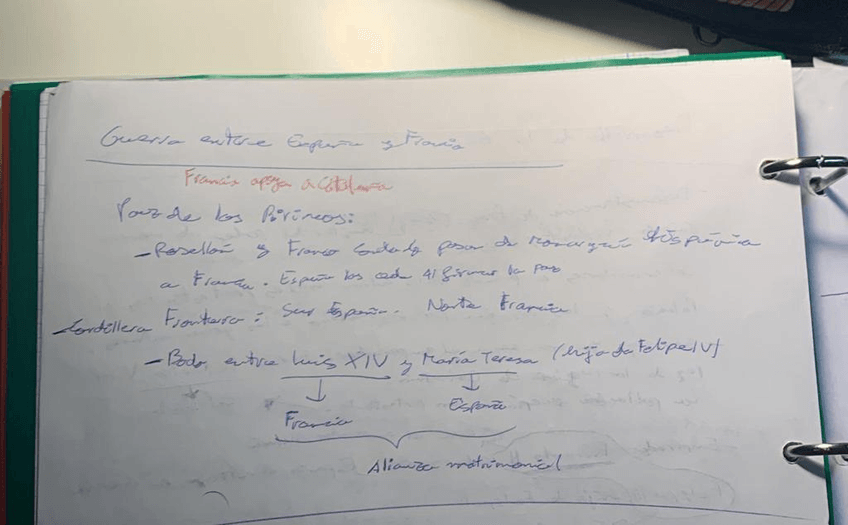 Guerra entre España y Francia
Francia apoya a Cataluña
Paz de los Pirineos:
- Rosellón y Franco Condado pasan de Monarquía Hispánica
a Francia. España los cede al firmar la paz
- Cordillera Frontera: Sur España. Norte Francia
- Boda entre Luis XIV y María Teresa (hija de Felipe IV)
Francia
España
Alianza matrimonial